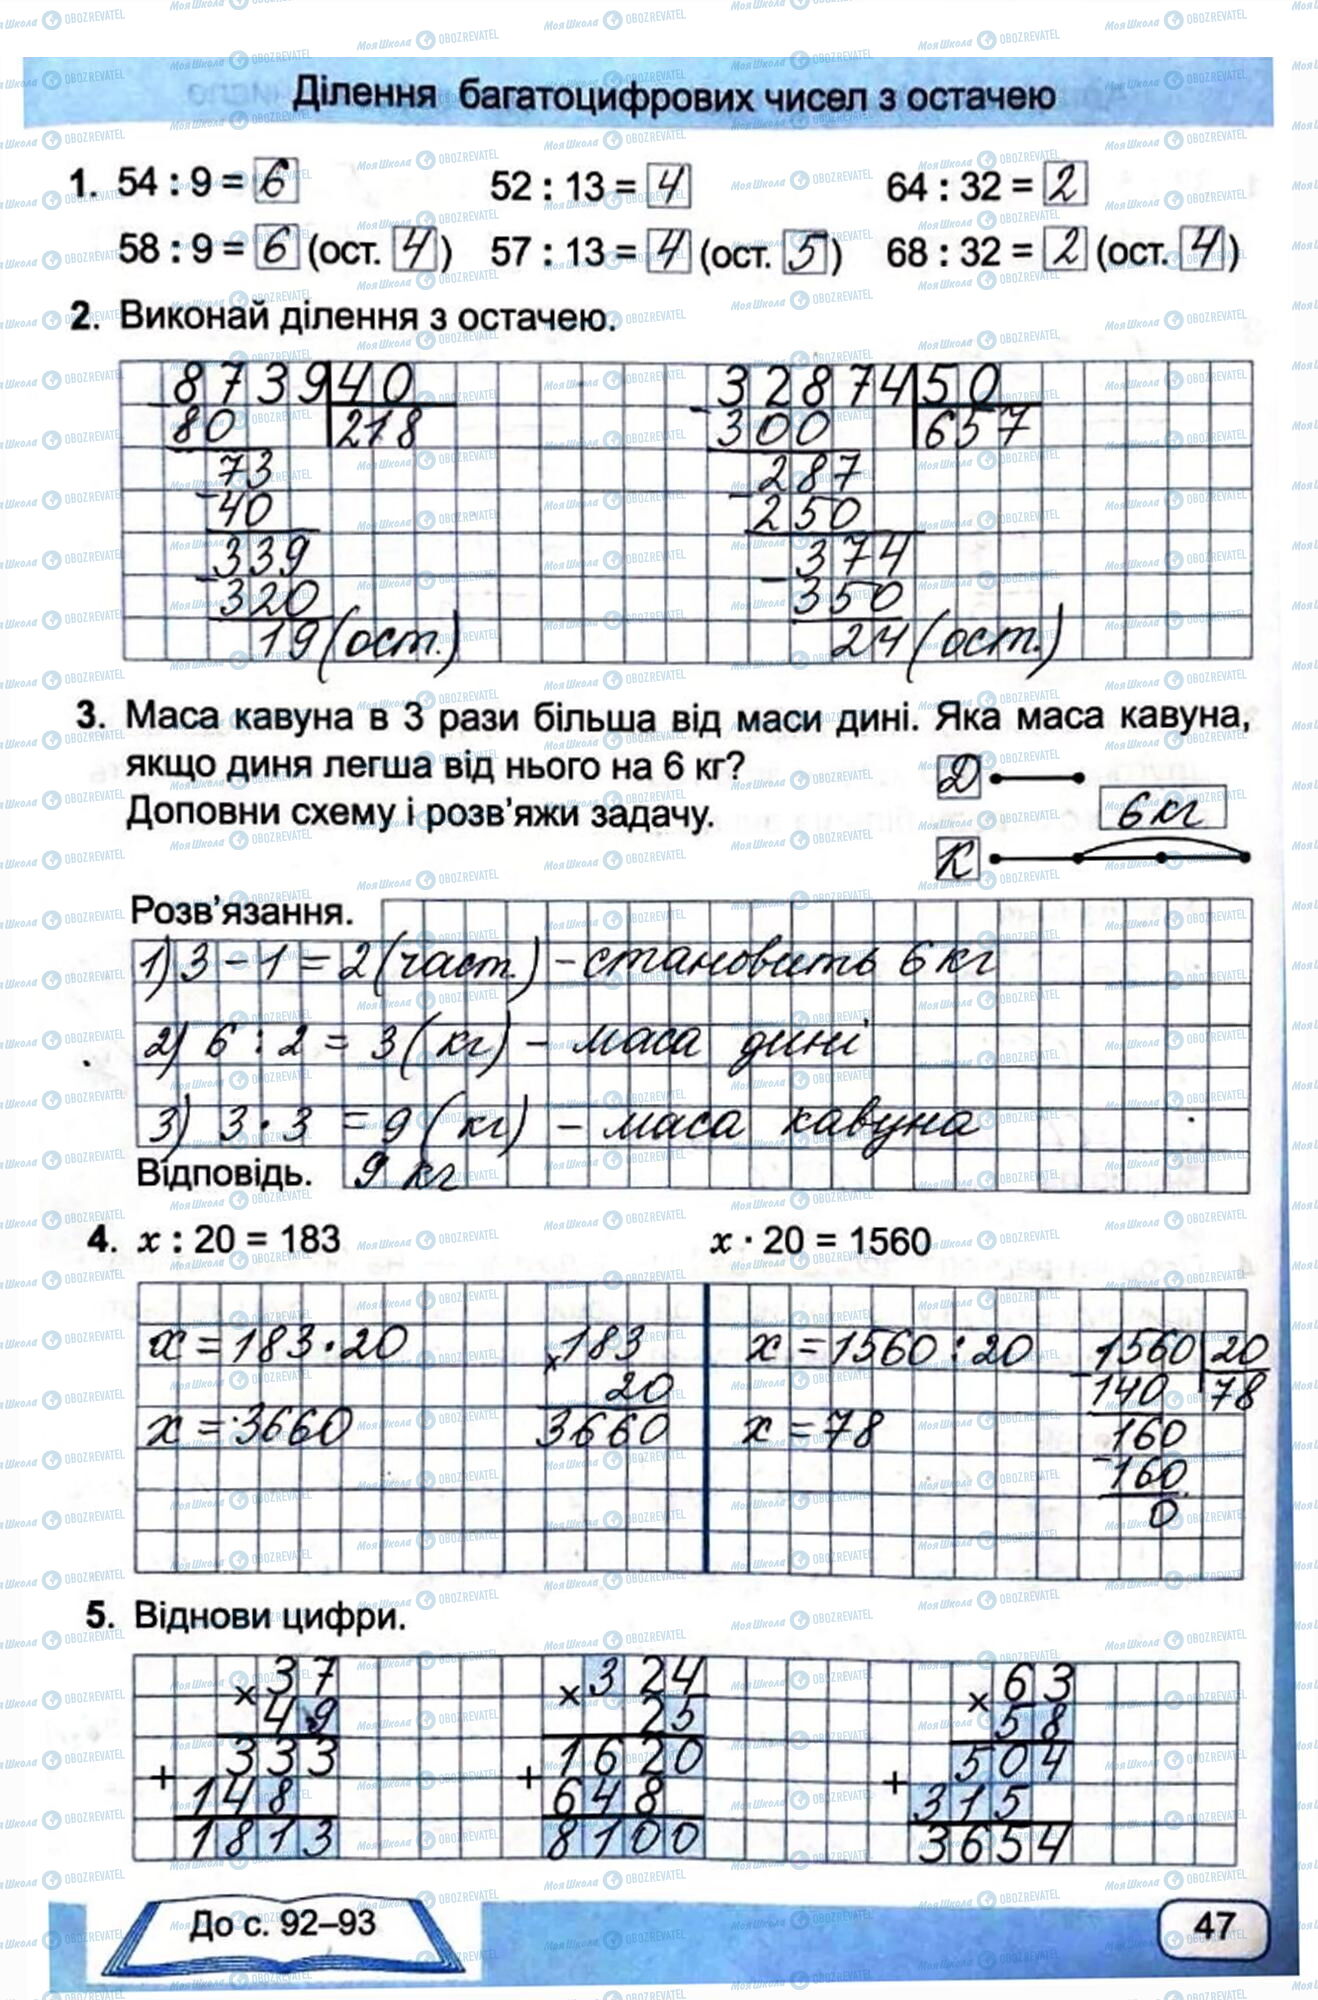 Ділення багатоцифрових чисел з остачею
1. 54 : 9 = 6 52 : 13 = 4 64 : 32 = 2
58 : 9 = 6 (ост. 4) 57 : 13 = 4 (ост. 5) 68 : 32 = 2 (ост. 4)
2. Виконай ділення з остачею.
8739 40 32874 50
- 80 218 - 300 657
73 287
- 40 - 250
339 374
- 320 - 350
19 (ост.) 24 (ост.)
3. Маса кавуна в 3 рази більша від маси дині. Яка маса кавуна,
якщо диня легша від нього на 6 кг? Д
Доповни схему і розв'яжи задачу. 6 кг
К
Розв'язання.
1) 3 - 1 = 2 (част.) - становить 6 кг
2) 6 : 2 = 3 (кг) - маса дині
3) 3 · 3 = 9 (кг) - маса кавуна
Відповідь. 9 кг
4. x : 20 = 183 x · 20 = 1560
x = 183 · 20 183 x = 1560 : 20 1560 20
x 20 - 140 78
x = 3660 3660 x = 78 160
- 160
0
5. Віднови цифри.
x 37 x 324 x 63
49 25 58
+ 333 + 1620 + 504
148 648 315
1813 8100 3654
До с. 92–93 47
МояШкола OBOZREVATEL